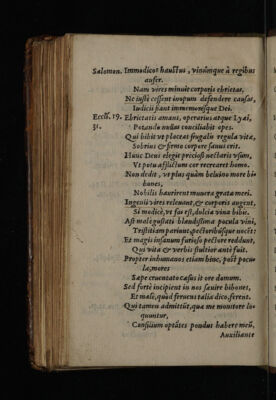 Salomon. Immodicos haustus, vinumque à regibus
aufer.
Nam vires minuit corporis ebrietas,
Ne iusti cessent inopum defendere causas,
Iudicii fiant immemoresque Dei.
Eccli. 19. Ebrietatis amans, operarius atque Lyæi,
31. Potando nullas conciliabit opes.
Qui bibit vt placeat frugalis regula vitæ,
Sobrius & firmo corpore sanus erit.
Hunc Deus elegit preciosi nectaris vsum,
Vt potu afflictum cor recrearet homo.
Non dedit, vt plus quàm beluino more bi-
bones,
Nobilis haurirent munera grata meri.
Ingenii vires releuant, & corporis augent,
Si modicè, vt fas est, dulcia vina bibis.
Ast malè gustati blandissima pocula vini,
Tristitiam pariunt, pectoribusque nocēt:
Et magis insanum furioso pectore reddunt,
Qui vita & verbis stultior antè fuit.
Propter inhumanos etiam hinc, post pocu-
la, mores
Sæpe cruentato casus it ore domum.
Sed fortè incipient in nos sæuire bibones,
Et malè, quòd feruent talia dico, ferent.
Qui tamen admittūt, quæ me monitore lo-
quuntur,
Consilium optātes pondus habere meū,
Auxiliante